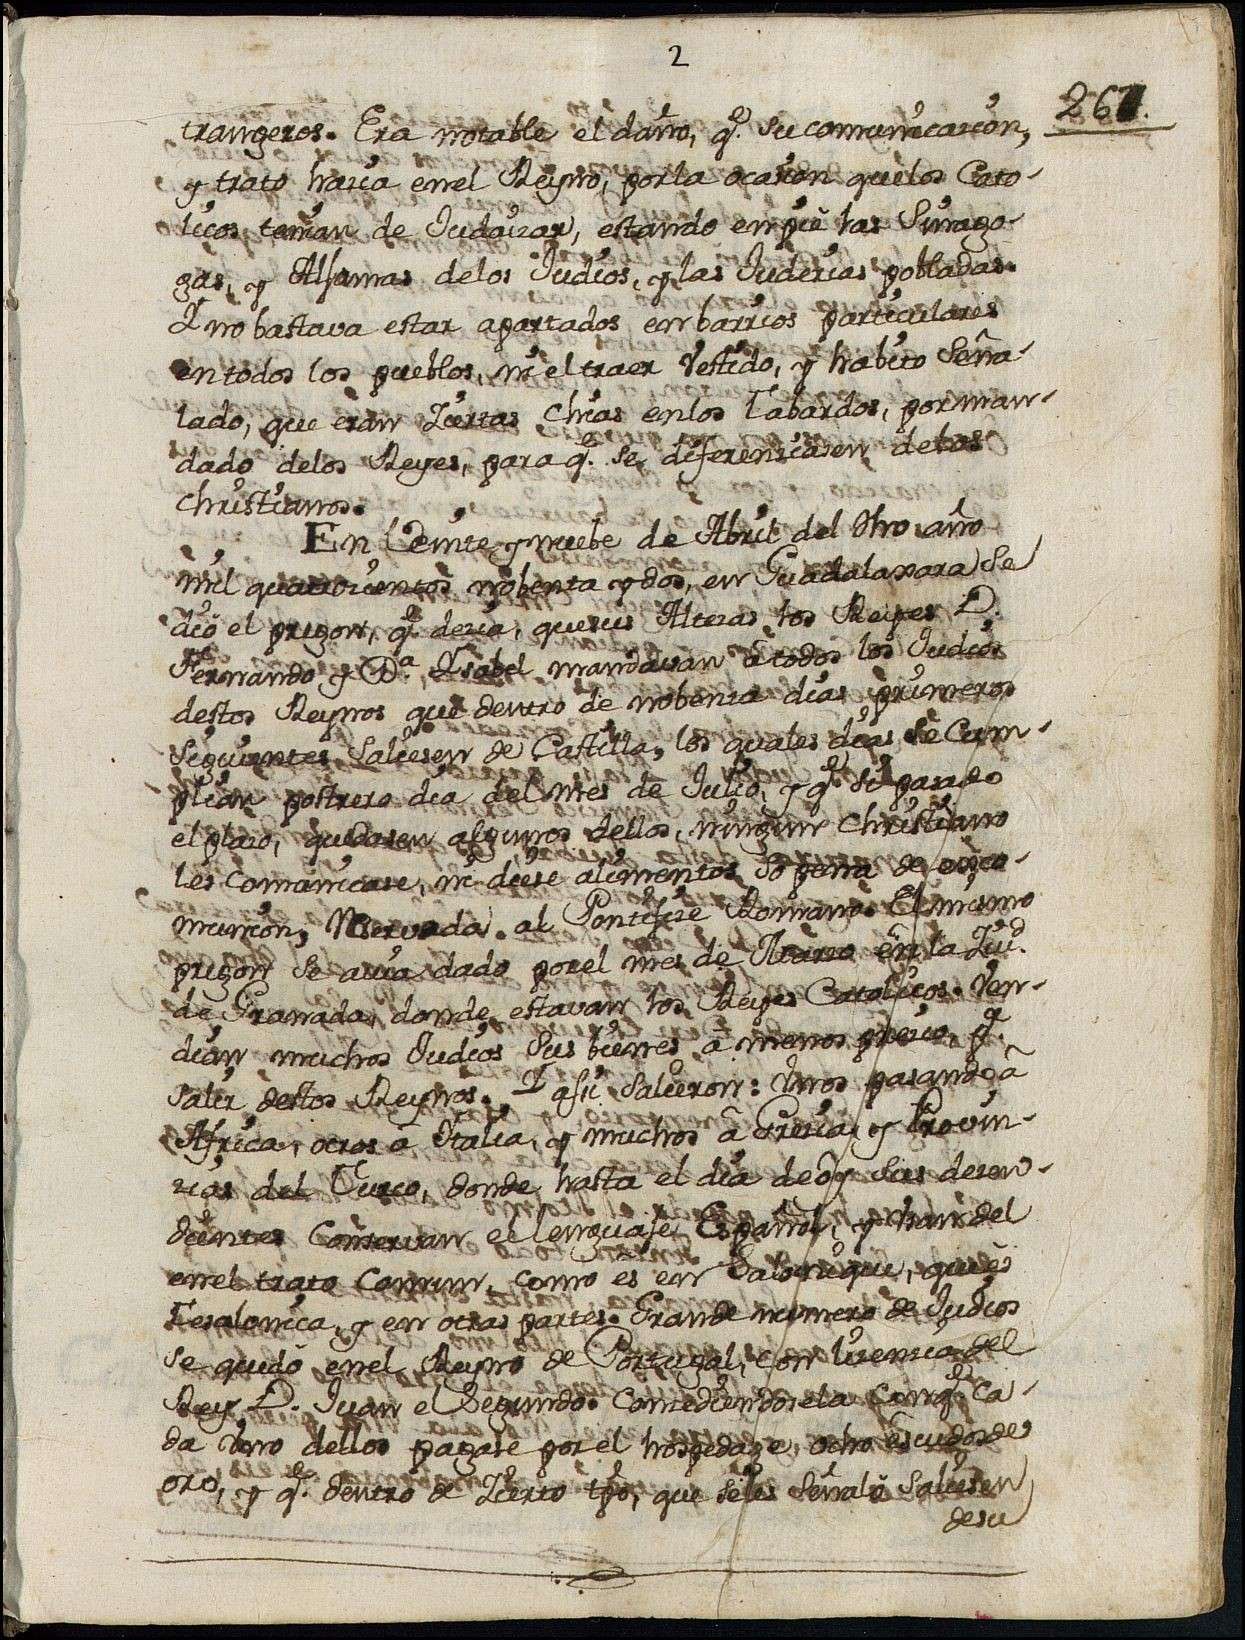 2
267.
trangeros. Era notable el daño, q.e su comunicacion,
y trato hacia en el Reyno, por la ocasion que los Cato-
licos tenian de Judaizar, estando en pie las Sinago-
gas, y Aljamas de los Judios, y las Juderias pobladas.
Y no bastava estar apartados en barrios particulares
en todos los pueblos, ni el traer Vestido, y habito Seña-
lado, que eran Ziertas Chias en los Tabardos, por man-
dado de los Reyes, para q.e se diferenciasen de los
christianos.
En Veinte y nuebe de Abril del dho año
mil quatrocientos nobenta y dos, en Guadalaxara Se
dió el pregon, q.e decia, que sus Altezas los Reyes D.
Fernando y D.a Ysabel mandavan á todos los Judios
destos Reynos que dentro de nobenta dias primeros
Siguientes Saliesen de Castilla, los quales dias Se Cum-
plian postrero dia del mes de Julio, y q.e si pasado
el plazo, quedasen algunos dellos, ningun christiano
les comunicase, ni diese alimentos Só pena de exco-
munion, Reservada al Pontifize Romano. El mismo
pregon se avia dado por el mes de Marzo en la Ziu.d
de Granada, donde estavan los Reyes Catolicos. Ven-
dian muchos Judios Sus bienes á menos precio, p.r
salir destos Reynos. Y asi Salieron: Vnos pasando á
Africa, otros á Italia, y muchos á Grecia, y Provin-
cias del Turco, donde hasta el dia de oy Sus decen-
dientes Conservan el lenguaje Español, y Vsan del
en el trato Comun, como es en Salonique, que es
Tesalonica, y en otras partes. Grande numero de Judios
se quedó en el Reyno de Portugal, con licencia del
Rey D. Juan el Segundo. Concediendosela Con q.e Ca-
da Vno dellos pagase por el hospedaje ocho escudos de
oro, y q.e dentro de Zierto tpo, que se les Señaló Saliesen
de su